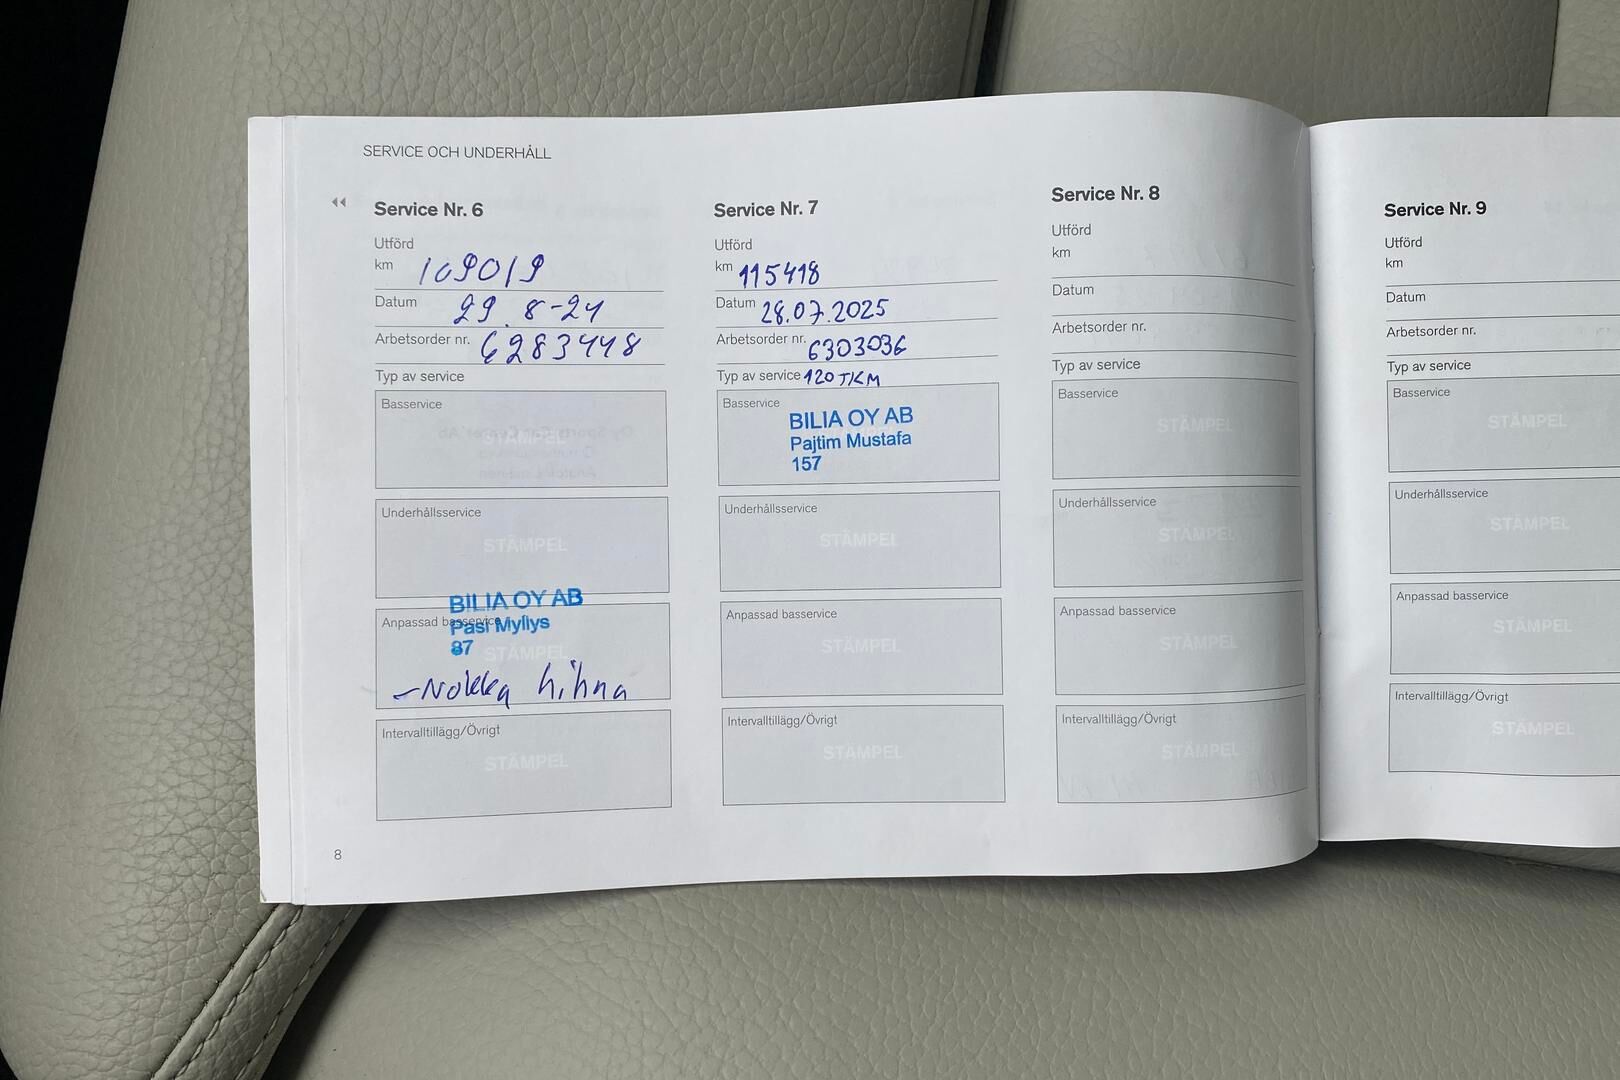 SERVICE OCH UNDERHÅLL
Service Nr. 6
Utförd
km 109019
Datum 29.8-24
Arbetsorder nr. 6283448
Typ av service
Basservice
STÄMPEL
Underhållsservice
STÄMPEL
BILIA OY AB
Anpassad basservice
Pasi Myllys
87
STÄMPEL
-Nokka hihna
Intervalltillägg/Övrigt
STÄMPEL
8
Service Nr. 7
Utförd
km 115418
Datum 28.07.2025
Arbetsorder nr. 6303036
Typ av service 120 TKM
Basservice
BILIA OY AB
Pajtim Mustafa
157
Underhållsservice
STÄMPEL
Anpassad basservice
STÄMPEL
Intervalltillägg/Övrigt
STÄMPEL
Service Nr. 8
Utförd
km
Datum
Arbetsorder nr.
Typ av service
Basservice
STÄMPEL
Underhållsservice
STÄMPEL
Anpassad basservice
STÄMPEL
Intervalltillägg/Övrigt
STÄMPEL
Service Nr. 9
Utförd
km
Datum
Arbetsorder nr.
Typ av service
Basservice
STÄMPEL
Underhållsservice
STÄMPEL
Anpassad basservice
STÄMPEL
Intervalltillägg/Övrigt
STÄMPEL